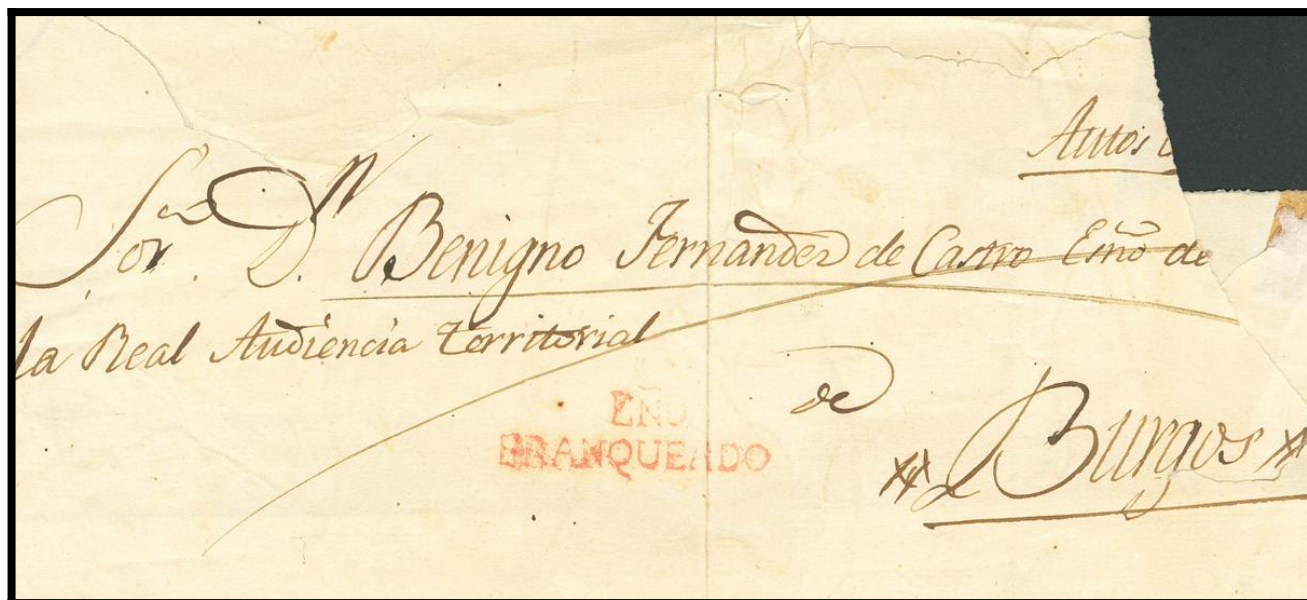 Autos
Sor. Dn. D. Benigno Fernandez de Castro Esño de
la Real Audiencia Territorial
de
Burgos
FRANQUEADO